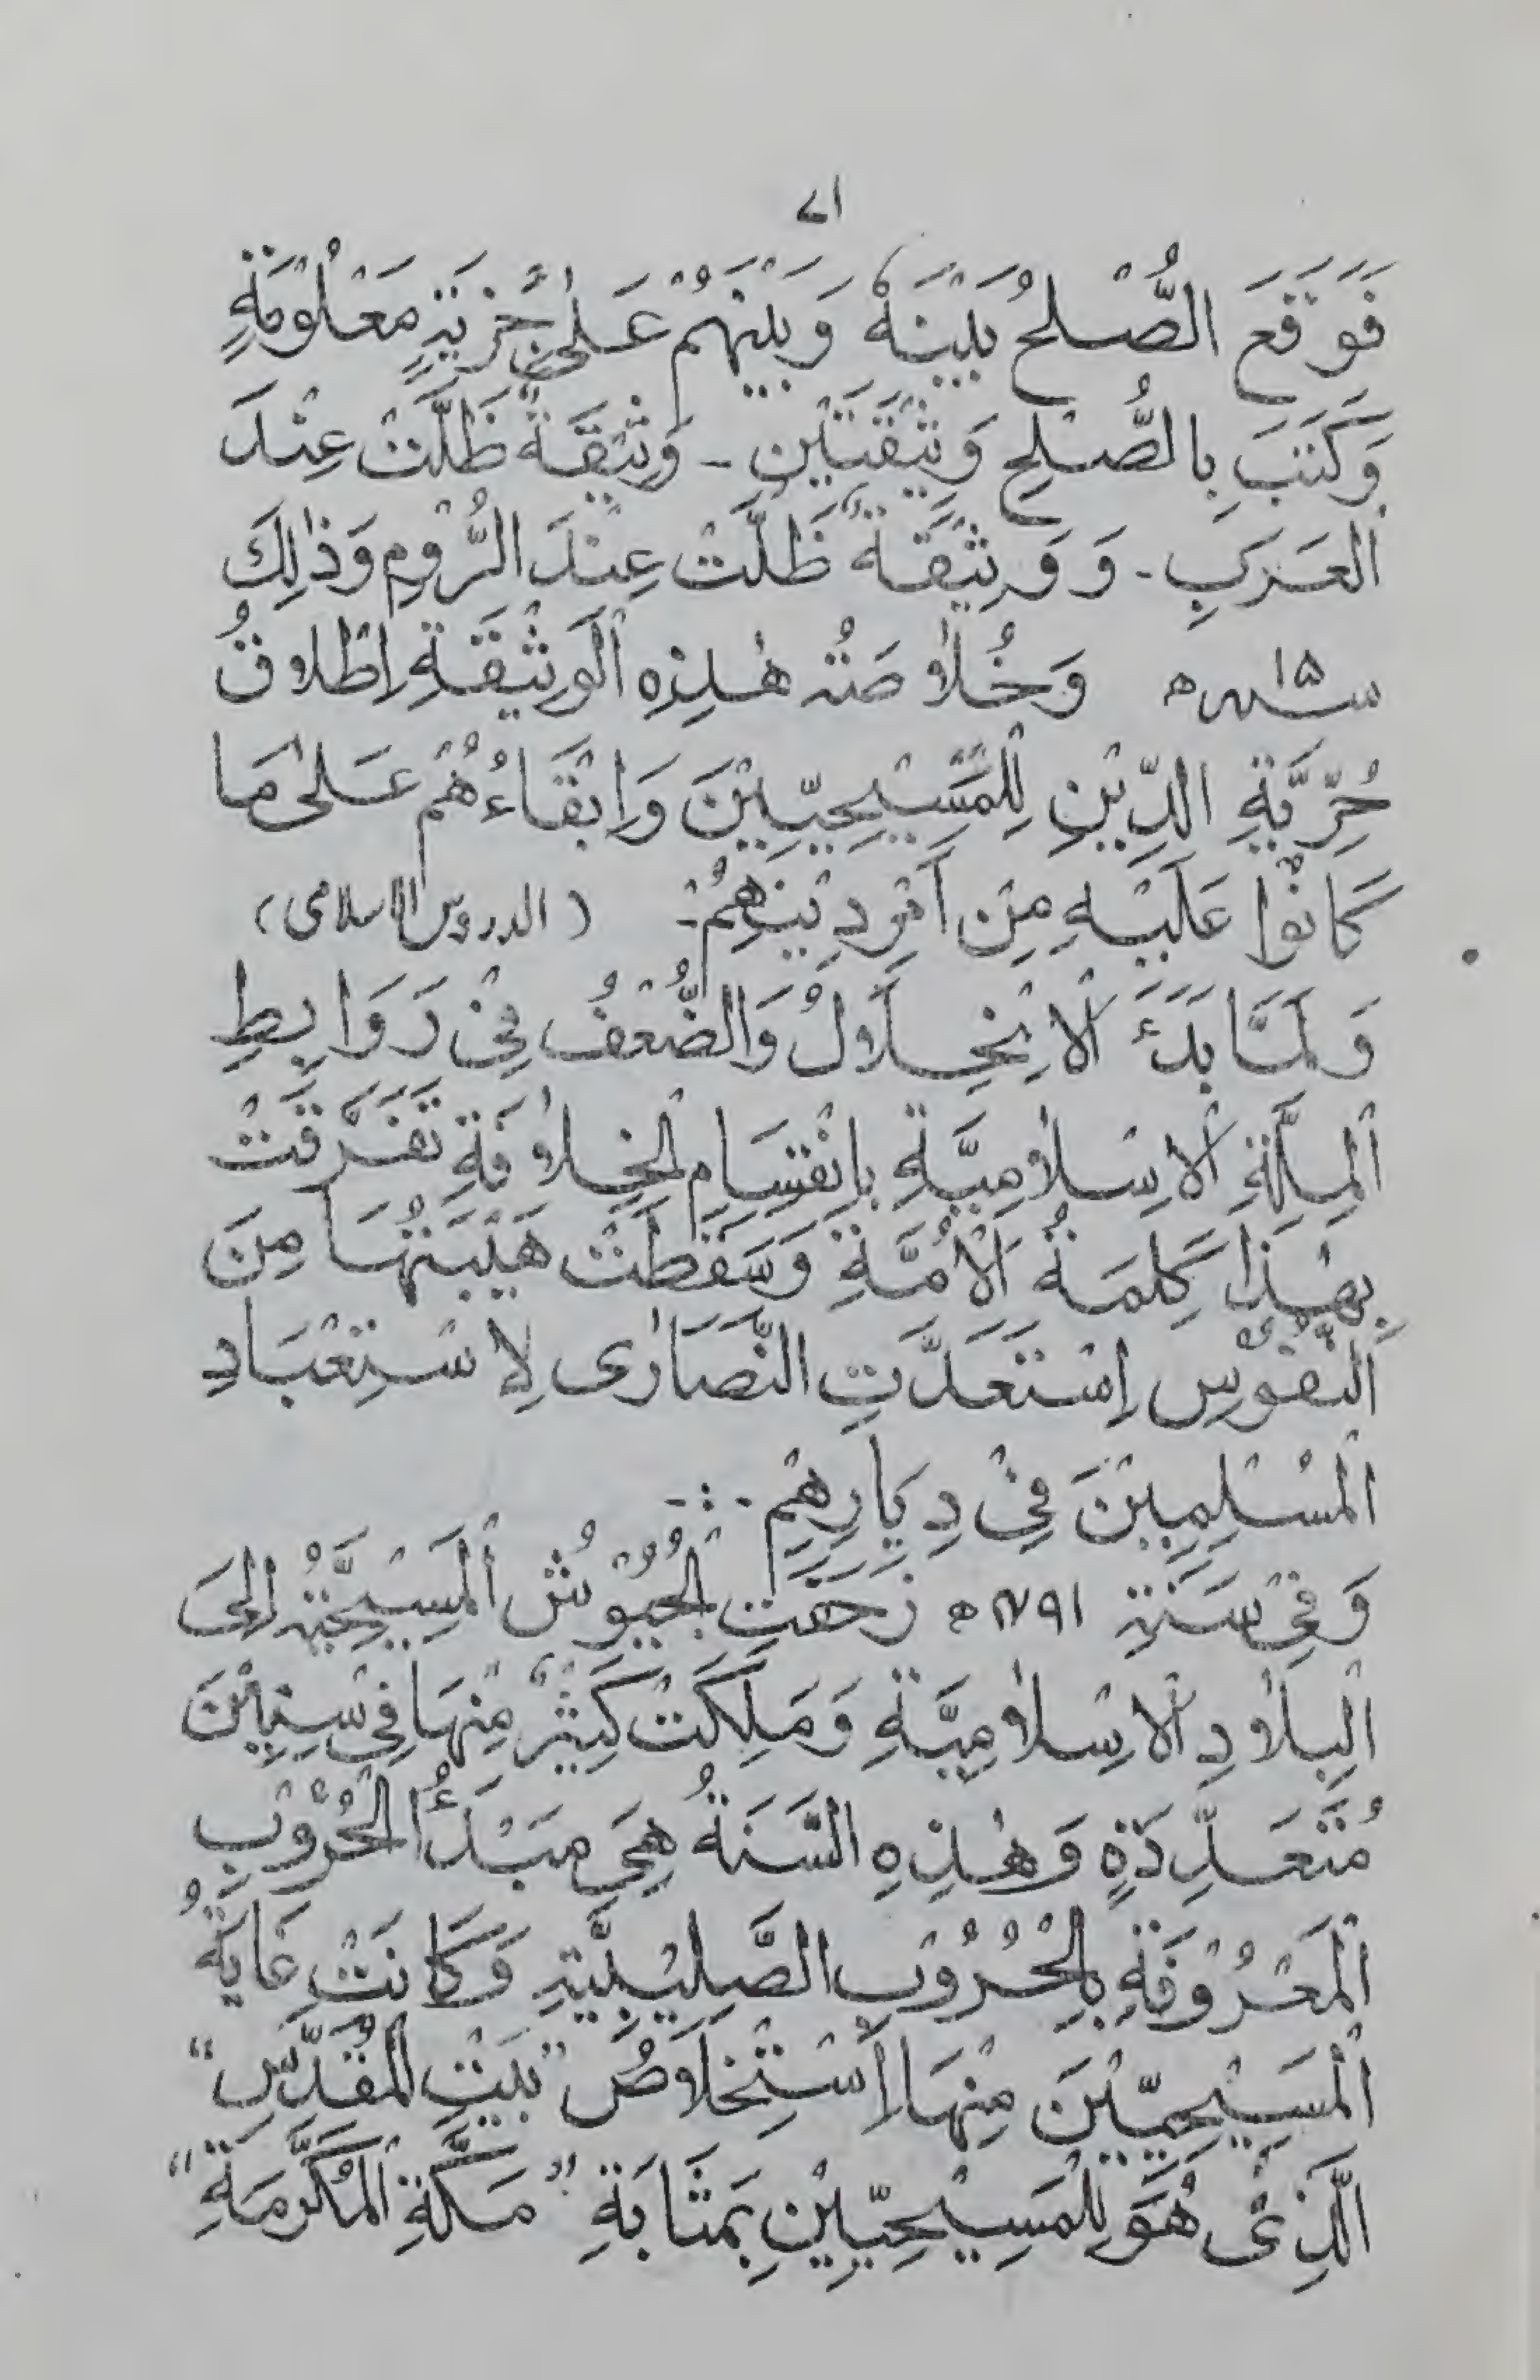 ٧١
فَوَقَعَ الصُّلْحُ بَيْنَهُ وَبَيْنَهُمْ عَلٰى جِزْيَةٍ مَعْلُوْمَةٍ
وَكَتَبَ بِالصُّلْحِ وَثِيْقَتَيْنِ - وَثِيْقَةٌ ظَلَّتْ عِنْدَ
الْعَرَبِ - وَوَثِيْقَةٌ ظَلَّتْ عِنْدَ الرُّوْمِ وَذٰلِكَ
سنہ ۱۵ ھ وَخُلاٰصَتُہ هٰذِهِ الْوَثِيْقَةِ اِطْلَاقُ
حُرِّيَّةِ الدِّيْنِ لِلْمَسِيْحِيِّيْنَ وَاِبْقَاءُهُمْ عَلٰى مَا
كَانُوْا عَلَيْهِ مِنْ اَمْرِ دِيْنِهِمْ ـ (الدروس الاسلامى)
وَلَمَّا بَدَءَ الْاِنْحِلَالُ وَالضُّعْفُ فِىْ رَوَابِطِ
الْمِلَّةِ الْاِسْلاٰمِيَّةِ بِاِنْقِسَامِ الْخِلاٰفَةِ تَفَرَّقَتْ
بِهٰذَا كَلِمَةُ الْاُمَّةِ وَسَقَطَتْ هَيْبَتُهَا مِنَ
النُّفُوْسِ اِسْتَعَدَّتِ النَّصَارٰى لِاسْتِعْبَادِ
الْمُسْلِمِيْنَ فِىْ دِيَارِهِمْ -:-
وَفِىْ سَنَةِ ۱۰۹۱ ھ زَحَفَتِ الْجُيُوْشُ الْمَسِيْحِيَّةُ اِلَى
الْبِلاٰدِ الْاِسْلاٰمِيَّةِ وَمَلَكَتْ كَثِيْرٌ مِنْهَا فِى سِنِيْنَ
مُتَعَدِّدَةٍ وَهٰذِهِ السَّنَةُ هِىَ مَبْدَأُ الْحُرُوْبِ
الْمَعْرُوْفَةِ بِالْحُرُوْبِ الصَّلِيْبِيَّةِ وَكَانَتْ غَايَةُ
الْمَسِيْحِيِّيْنَ مِنْهَا اِسْتِخْلَاصُ "بَيْتِ الْمُقَدَّسِ"
الَّذِىْ هُوَ لِلْمَسِيْحِيِّيْنَ بِمَثَابَةِ "مَكَّةَ الْمُكَرَّمَةِ"